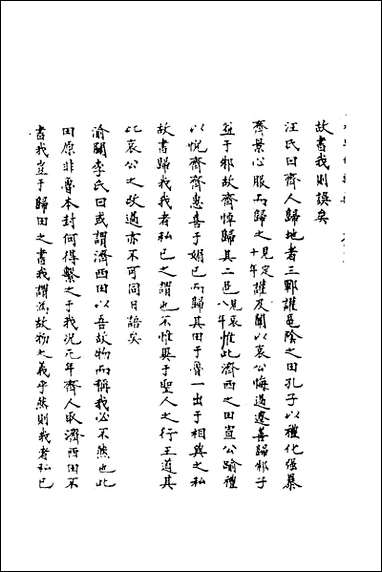 故書我則誤矣
汪氏曰齊人歸地者三鄆讙龜陰之田孔子以禮化强暴
齊景心服而歸之見定十年讙及闡以哀公悔過遷善歸邾子
益于邾故齊悼歸其二邑見哀八年惟此濟西之田宣公踰禮
以悅齊齊惠喜于媚已而歸其田于魯一出于相與之私
故書歸我我者私已之謂也不惟異于聖人之行王道其
此哀公之改過亦不可同日語矣
渝關李氏曰或謂濟西田以吾故物而稱我必不然也此
田原非魯本封何得繫之于我况元年齊人取濟西田不
書我豈于歸田之書我謂為故物之義乎然則我者私已